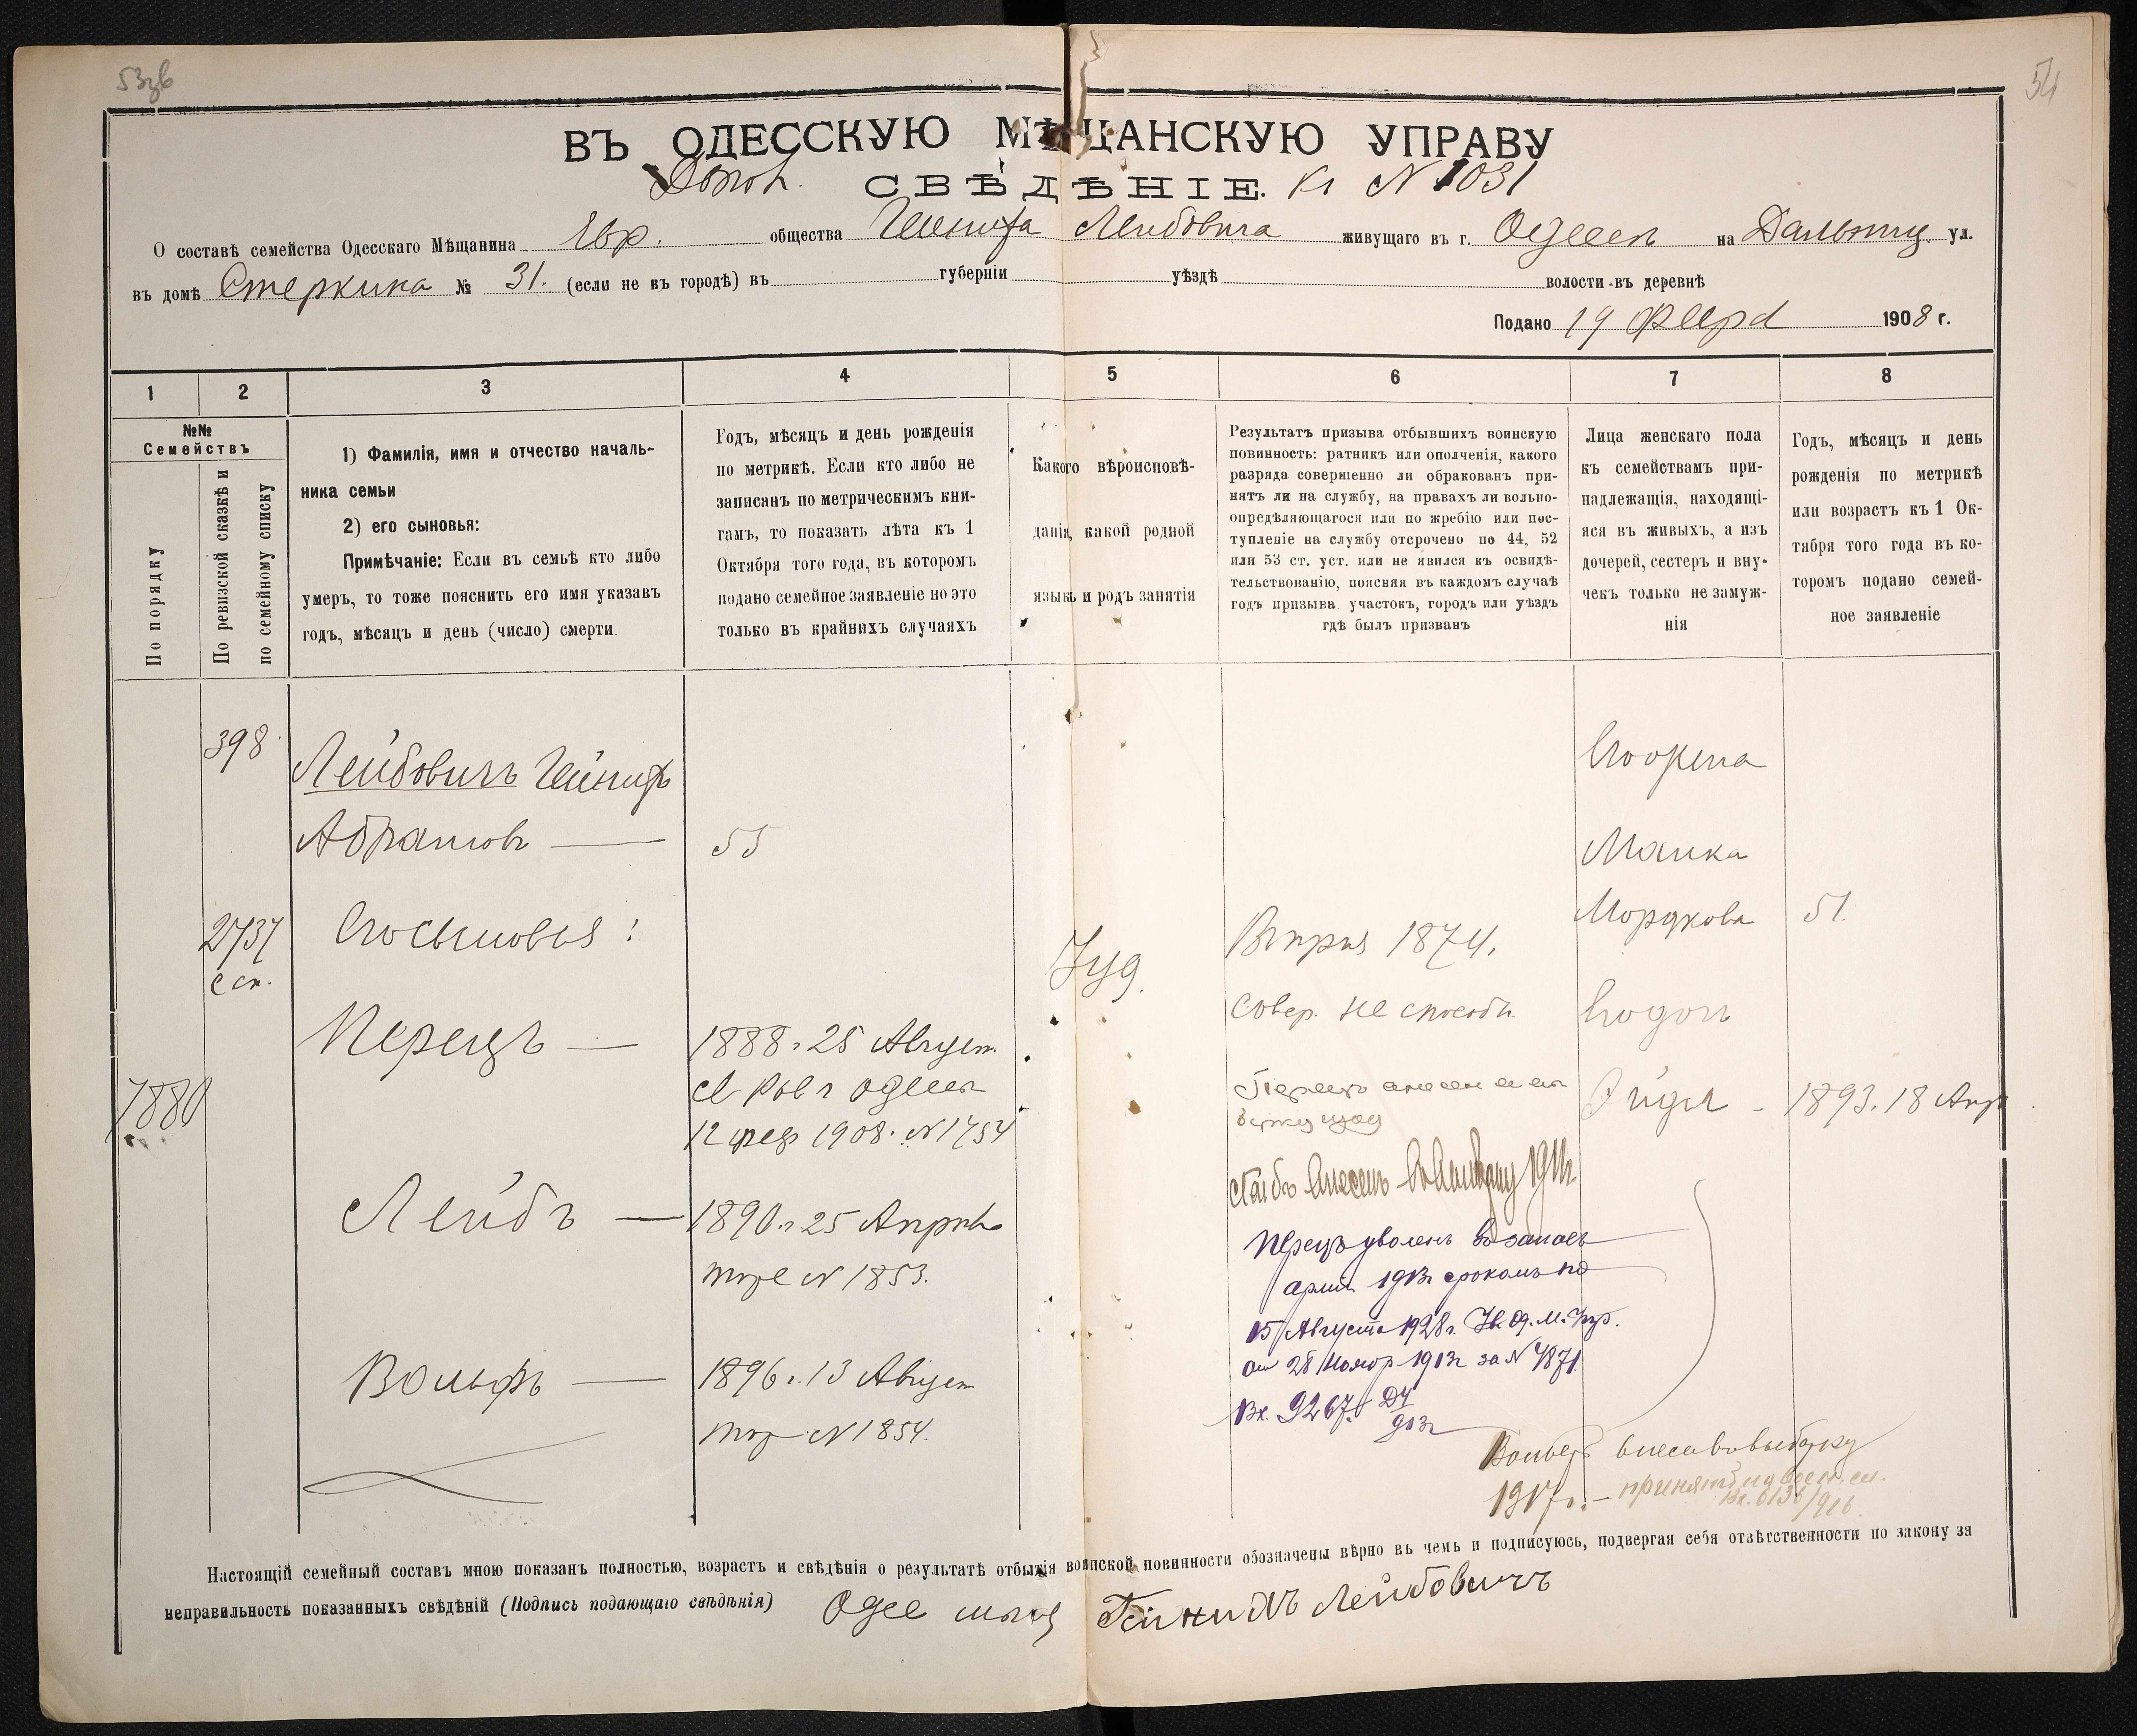 53зв
54
ВЪ ОДЕССКУЮ МѢЩАНСКУЮ УПРАВУ
Допол. СВѢДѢНІЕ. Кг N 1031
О составѣ семейства Одесскаго Мѣщанина Евр. общества Гейниха Лейбовича живущаго въ г. Одессѣ на Дальниц. ул.
въ домѣ Стеркина № 31. (если не въ городѣ) въ губерніи уѣздѣ волости въ деревнѣ
Подано 19 февр 1908 г.
1 2 3 4 5 6 7 8
№№
Семействъ
По порядку
По ревизской сказкѣ и
по семейному списку
1) Фамилія, имя и отчество началь-
ника семьи
2) его сыновья:
Примѣчаніе: Если въ семьѣ кто либо
умеръ, то тоже пояснить его имя указавъ
годъ, мѣсяцъ и день (число) смерти.
Годъ, мѣсяцъ и день рожденія
по метрикѣ. Если кто либо не
записанъ по метрическимъ кни-
гамъ, то показать лѣта къ 1
Октября того года, въ которомъ
подано семейное заявленіе но это
только въ крайнихъ случаяхъ
Какого вѣроисповѣ-
данія, какой родной
языкъ и родъ занятія
Результатъ призыва отбывшихъ воинскую
повинность: ратникъ или ополченія, какого
разряда совершенно ли обракованъ при-
нятъ ли на службу, на правахъ ли вольно-
опредѣляющагося или по жребію или пос-
тупленіе на службу отсрочено по 44, 52
или 53 ст. уст. или не явился къ освидѣ-
тельствованію, поясняя въ каждомъ случаѣ
годъ призыва. участокъ, городъ или уѣздъ
гдѣ былъ призванъ
Лица женскаго пола
къ семействамъ при-
надлежащія, находящі-
яся въ живыхъ, а изъ
дочерей, сестеръ и вну-
чекъ только не замуж-
нія
Годъ, мѣсяцъ и день
рожденія по метрикѣ
или возрастъ къ 1 Ок-
тября того года въ ко-
торомъ подано семей-
ное заявленіе
398
Лейбовичъ Гейнихъ
Абрамовъ — 55
2737
с сп.
Его сыновья:
Перецъ — 1888 г. 25 Август.
св. Рав г Одессы
12 февр 1908. N 1754
1880
Лейбъ — 1890 г. 25 Апрѣля
тоже N 1853.
Вольфъ — 1896 г. 13 Август
тоже N 1854.
Іуд.
Въ приз 1874.
совер. не способн.
Перецъ внесен
Лейбъ внесенъ 1911г.
Перецъ уволенъ въ запасъ
арміи 1913г срокомъ по
15 Августа 1928 г. Ув. Од. М. Упр.
от 28 Ноябр 1913г за N 4871.
Вх. 9267
913г
Вольфъ внесенъ въ выборку
1917г. — принятъ на воен. сл.
Вх. 6136/916
Его жена
Малка
Мордкова 51.
Его дочь
Эйдля — 1893. 18 Апр
Настоящій семейный составъ мною показанъ полностью, возрастъ и свѣдѣнія о результатѣ отбытія воинской повинности обозначены вѣрно въ чемъ и подписуюсь, подвергая себя отвѣтственности по закону за
неправильность показанныхъ свѣдѣній (Подпись подающаго свѣдѣнія) Одес мѣщ Гейнихъ Лейбовичъ